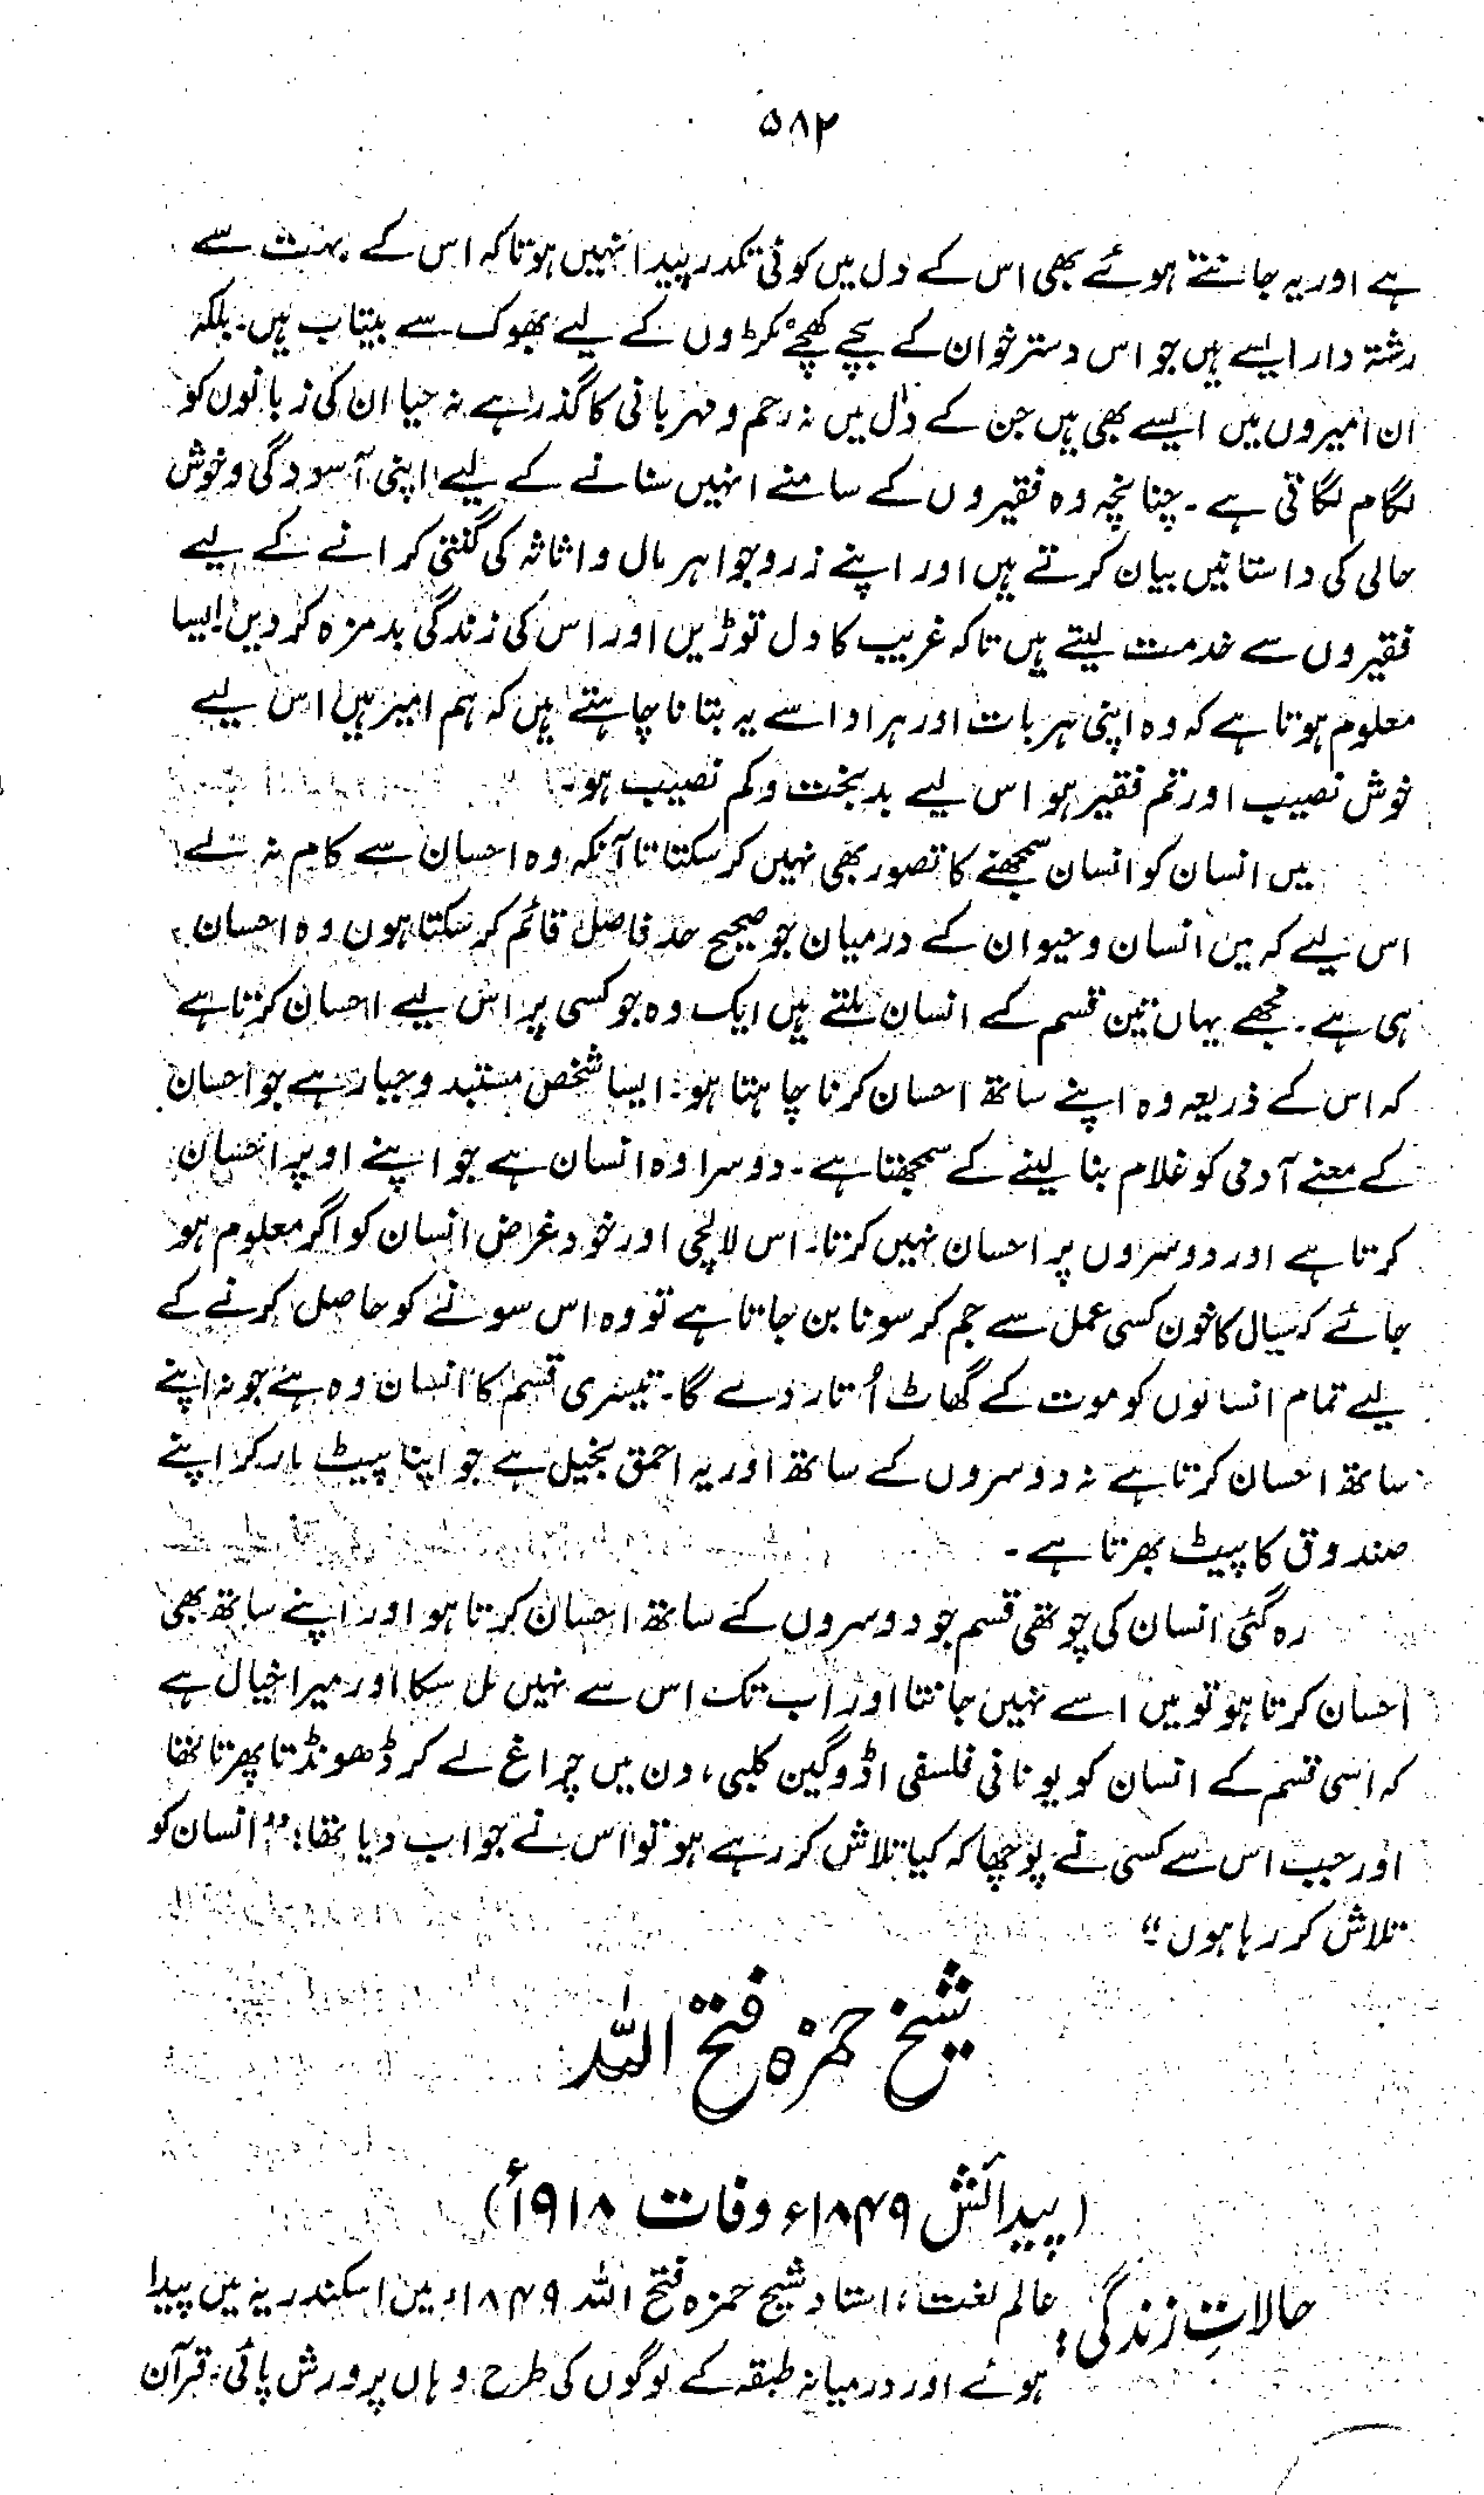 ۵۸۲
ہے اور یہ جانتے ہوئے بھی اس کے دل میں کوئی تکدر پیدا نہیں ہوتا کہ اس کے بہت سے
رشتہ دار ایسے ہیں جو اس دسترخوان کے بچے کھچے ٹکڑوں کے لیے بھوک سے بیتاب ہیں۔ بلکہ
ان امیروں میں ایسے بھی ہیں جن کے دل میں نہ رحم و مہربانی کا گذر ہے نہ حیا ان کی زبانوں کو
لگام لگاتی ہے۔ چنانچہ وہ فقیروں کے سامنے انہیں سنانے کے لیے اپنی آسودگی و خوش
حالی کی داستانیں بیان کرتے ہیں اور اپنے زر و جواہر مال و اثاثہ کی گنتی کرانے کے لیے
فقیروں سے خدمت لیتے ہیں تاکہ غریب کا دل توڑیں اور اس کی زندگی بدمزہ کر دیں ایسا
معلوم ہوتا ہے کہ وہ اپنی ہر بات اور ہر ادا سے یہ بتانا چاہتے ہیں کہ ہم امیر ہیں اس لیے
خوش نصیب اور تم فقیر ہو اس لیے بدبخت و کم نصیب ہو۔
میں انسان کو انسان سمجھنے کا تصور بھی نہیں کر سکتا تا آنکہ وہ احسان سے کام نہ لے
اس لیے کہ میں انسان و حیوان کے درمیان جو صحیح حد فاصل قائم کر سکتا ہوں وہ احسان
ہی ہے۔ مجھے یہاں تین قسم کے انسان ملتے ہیں ایک وہ جو کسی پر اس لیے احسان کرتا ہے
کہ اس کے ذریعہ وہ اپنے ساتھ احسان کرنا چاہتا ہو۔ ایسا شخص مستبد و جبار ہے جو احسان
کے معنے آدمی کو غلام بنا لینے کے سمجھتا ہے۔ دوسرا وہ انسان ہے جو اپنے اوپر احسان
کرتا ہے اور دوسروں پر احسان نہیں کرتا۔ اس لالچی اور خود غرض انسان کو اگر معلوم ہو
جائے کہ سیال کا خون کسی عمل سے جم کر سونا بن جاتا ہے تو وہ اس سونے کو حاصل کرنے کے
لیے تمام انسانوں کو موت کے گھاٹ اُتار دے گا۔ تیسری قسم کا انسان وہ ہے جو نہ اپنے
ساتھ احسان کرتا ہے نہ دوسروں کے ساتھ اور یہ احمق بخیل ہے جو اپنا پیٹ مار کر اپنے
صندوق کا پیٹ بھرتا ہے۔
رہ گئی انسان کی چوتھی قسم جو دوسروں کے ساتھ احسان کرتا ہو اور اپنے ساتھ بھی
احسان کرتا ہو تو میں اسے نہیں جانتا اور اب تک اس سے نہیں مل سکا اور میرا خیال ہے
کہ اسی قسم کے انسان کو یونانی فلسفی اڈوگین کلبی، دن میں چراغ لے کر ڈھونڈتا پھرتا تھا
اور جب اس سے کسی نے پوچھا کہ کیا تلاش کر رہے ہو تو اس نے جواب دیا تھا؛ "انسان کو
تلاش کر رہا ہوں"
شیخ حمزہ فتح اللہ
(پیدائش ۱۸۴۹ء وفات ۱۹۱۸ء)
حالاتِ زندگی: عالم لغت، استاد شیخ حمزہ فتح اللہ ۱۸۴۹ء میں اسکندریہ میں پیدا
ہوئے اور درمیانہ طبقہ کے لوگوں کی طرح وہاں پرورش پائی، قرآن